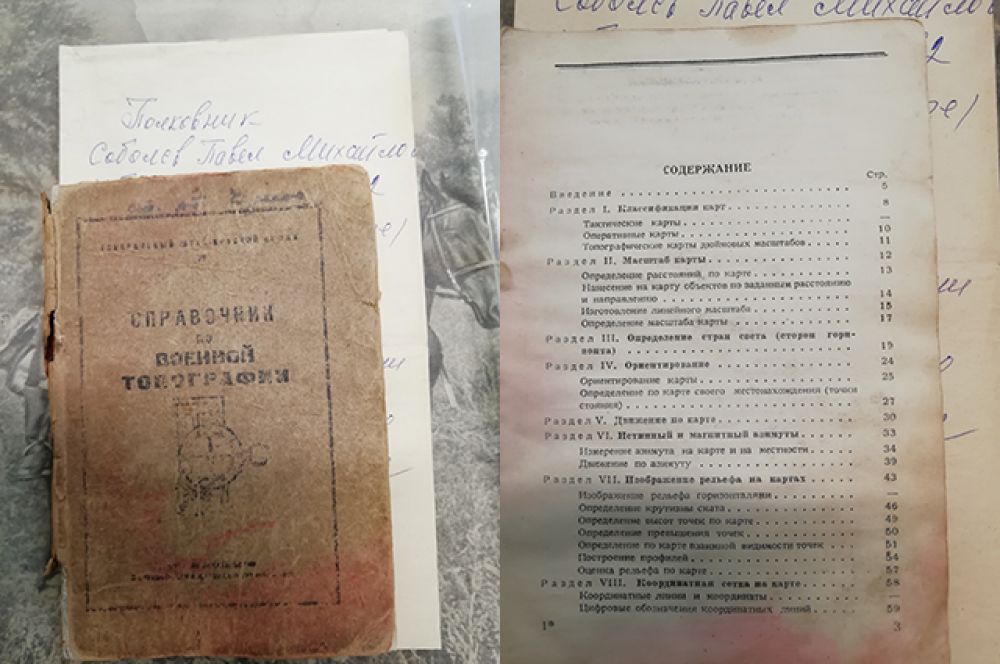 Полковник
Соболев Павел Михайло
СПРАВОЧНИК
ПО
ВОЕННОЙ
ТОПОГРАФИИ
Соболев Павел Михайло
СОДЕРЖАНИЕ
Стр.
Введение 5
Раздел I. Классификация карт 8
Тактические карты —
Оперативные карты 10
Топографические карты дюймовых масштабов 11
Раздел II. Масштаб карты 12
Определение расстояний по карте 13
Нанесение на карту объектов по заданным расстоянию
и направлению 14
Изготовление линейного масштаба 15
Определение масштаба карты 17
Раздел III. Определение стран света (сторон гори-
зонта) 19
Раздел IV. Ориентирование 24
Ориентирование карты 25
Определение по карте своего местонахождения (точки
стояния) 27
Раздел V. Движение по карте 30
Раздел VI. Истинный и магнитный азимуты 33
Измерение азимута на карте и на местности 34
Движение по азимуту 39
Раздел VII. Изображение рельефа на картах 43
Изображение рельефа горизонталями —
Определение крутизны ската 46
Определение высот точек по карте 49
Определение превышения точек 50
Определение по карте взаимной видимости точек 51
Построение профилей 54
Оценка рельефа по карте 57
Раздел VIII. Координатная сетка на карте 58
Координатные линии и координаты —
Цифровые обозначения координатных линий 59
1* 3